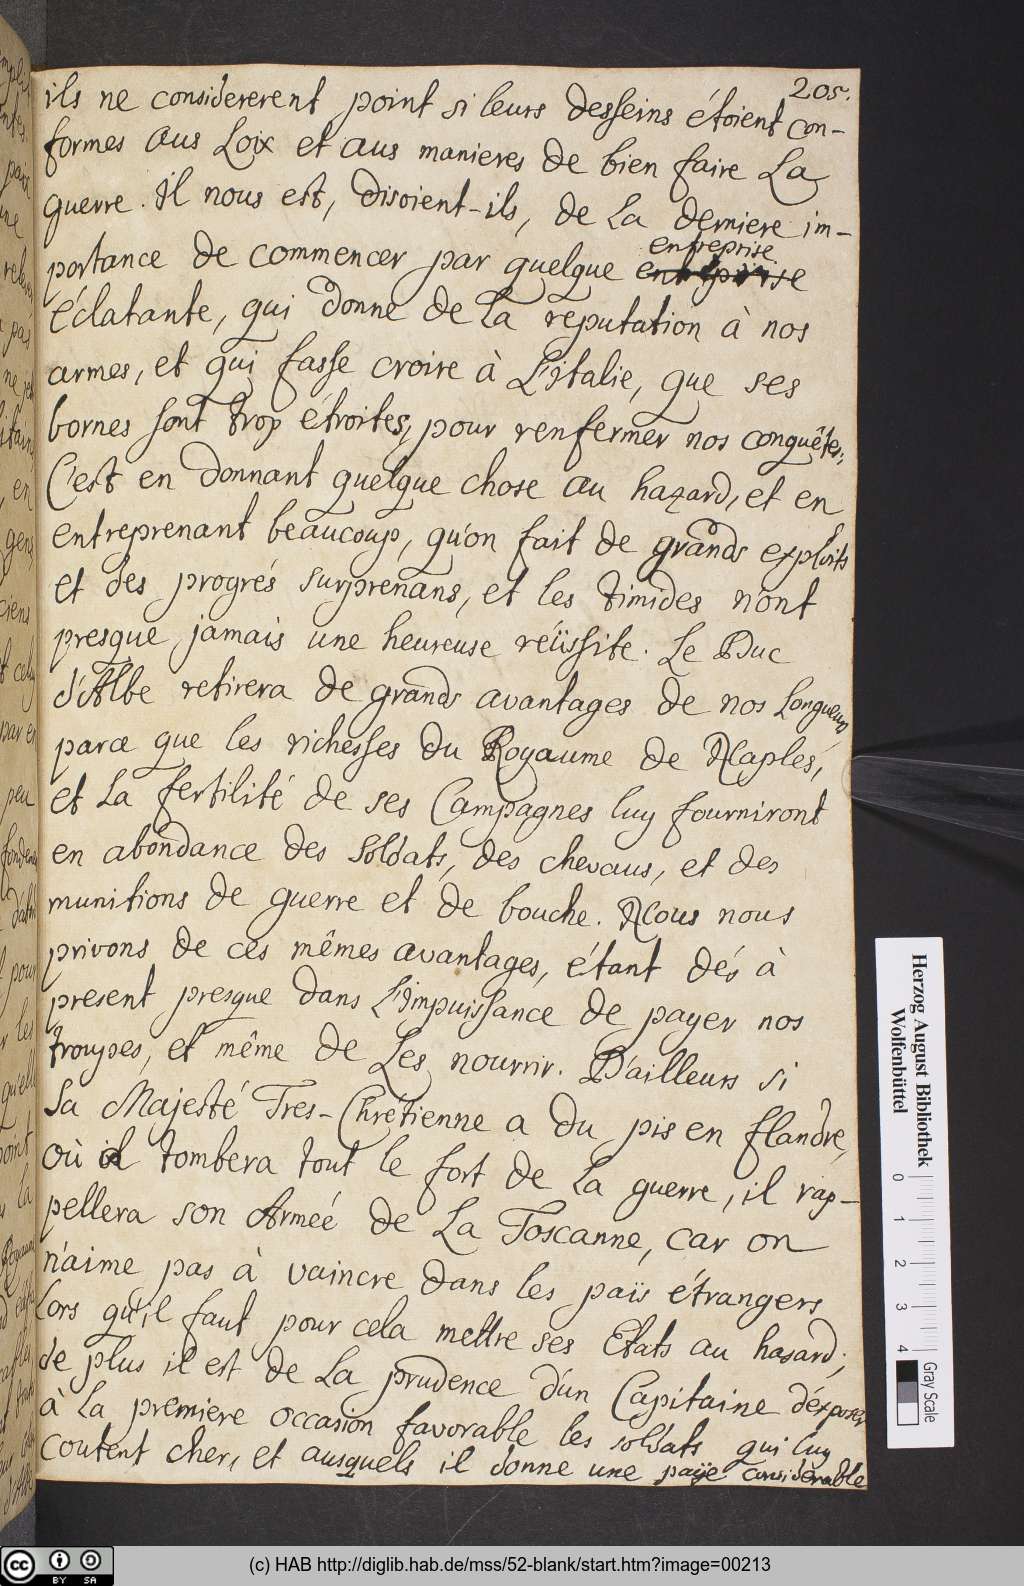 205.
ils ne considererent point si leurs desseins étoient con-
formes aus Loix et aus manieres de bien faire La
guerre. Il nous est, disoient-ils, de La derniere im-
entreprise
portance de commencer par quelque entreprise
éclatante, qui donne de La reputation à nos
armes, et qui fasse croire à L'Italie, que ses
bornes sont trop étroites, pour renfermer nos conquêtes;
C'est en donnant quelque chose au hazard, et en
entreprenant beaucoup, qu'on fait de grands exploits
et des progrés surprenans, et les timides n'ont
presque jamais une heureuse reüssite. Le Duc
d'Albe retirera de grands avantages de nos Longueurs
parce que les richesses du Royaume de Naples,
et La fertilité de ses Campagnes luy fourniront
en abondance des soldats, des chevaus, et des
munitions de guerre et de bouche. Nous nous
privons de ces mêmes avantages, étant dés à
present presque dans L'Impuissance de payer nos
troupes, et même de Les nourrir. D'ailleurs si
Sa Majesté Tres-Chrétienne a du pis en flandre,
où il tombera tout le fort de La guerre, il rap-
pellera son Armeé de La Toscanne, car on
n'aime pas à vaincre dans les païs étrangers
Lors qu'il faut pour cela mettre ses Etats au hasard;
de plus il est de La prudence d'un Capitaine d'exposer
à La premiere occasion favorable les soldats qui luy
coutent cher, et ausquels il donne une païe considerable
Herzog August Bibliothek
Wolfenbüttel
0 1 2 3 4
Gray Scale
cc BY SA
(c) HAB http://diglib.hab.de/mss/52-blank/start.htm?image=00213